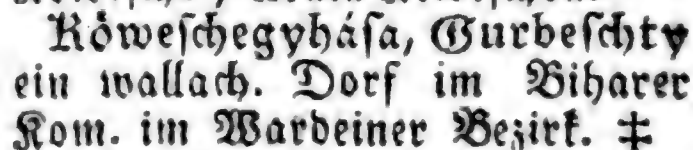 Köweſchegyháſa, Gurbeſchty
ein wallach. Dorf im Biharer
Kom. im Wardeiner Bezirk. ‡